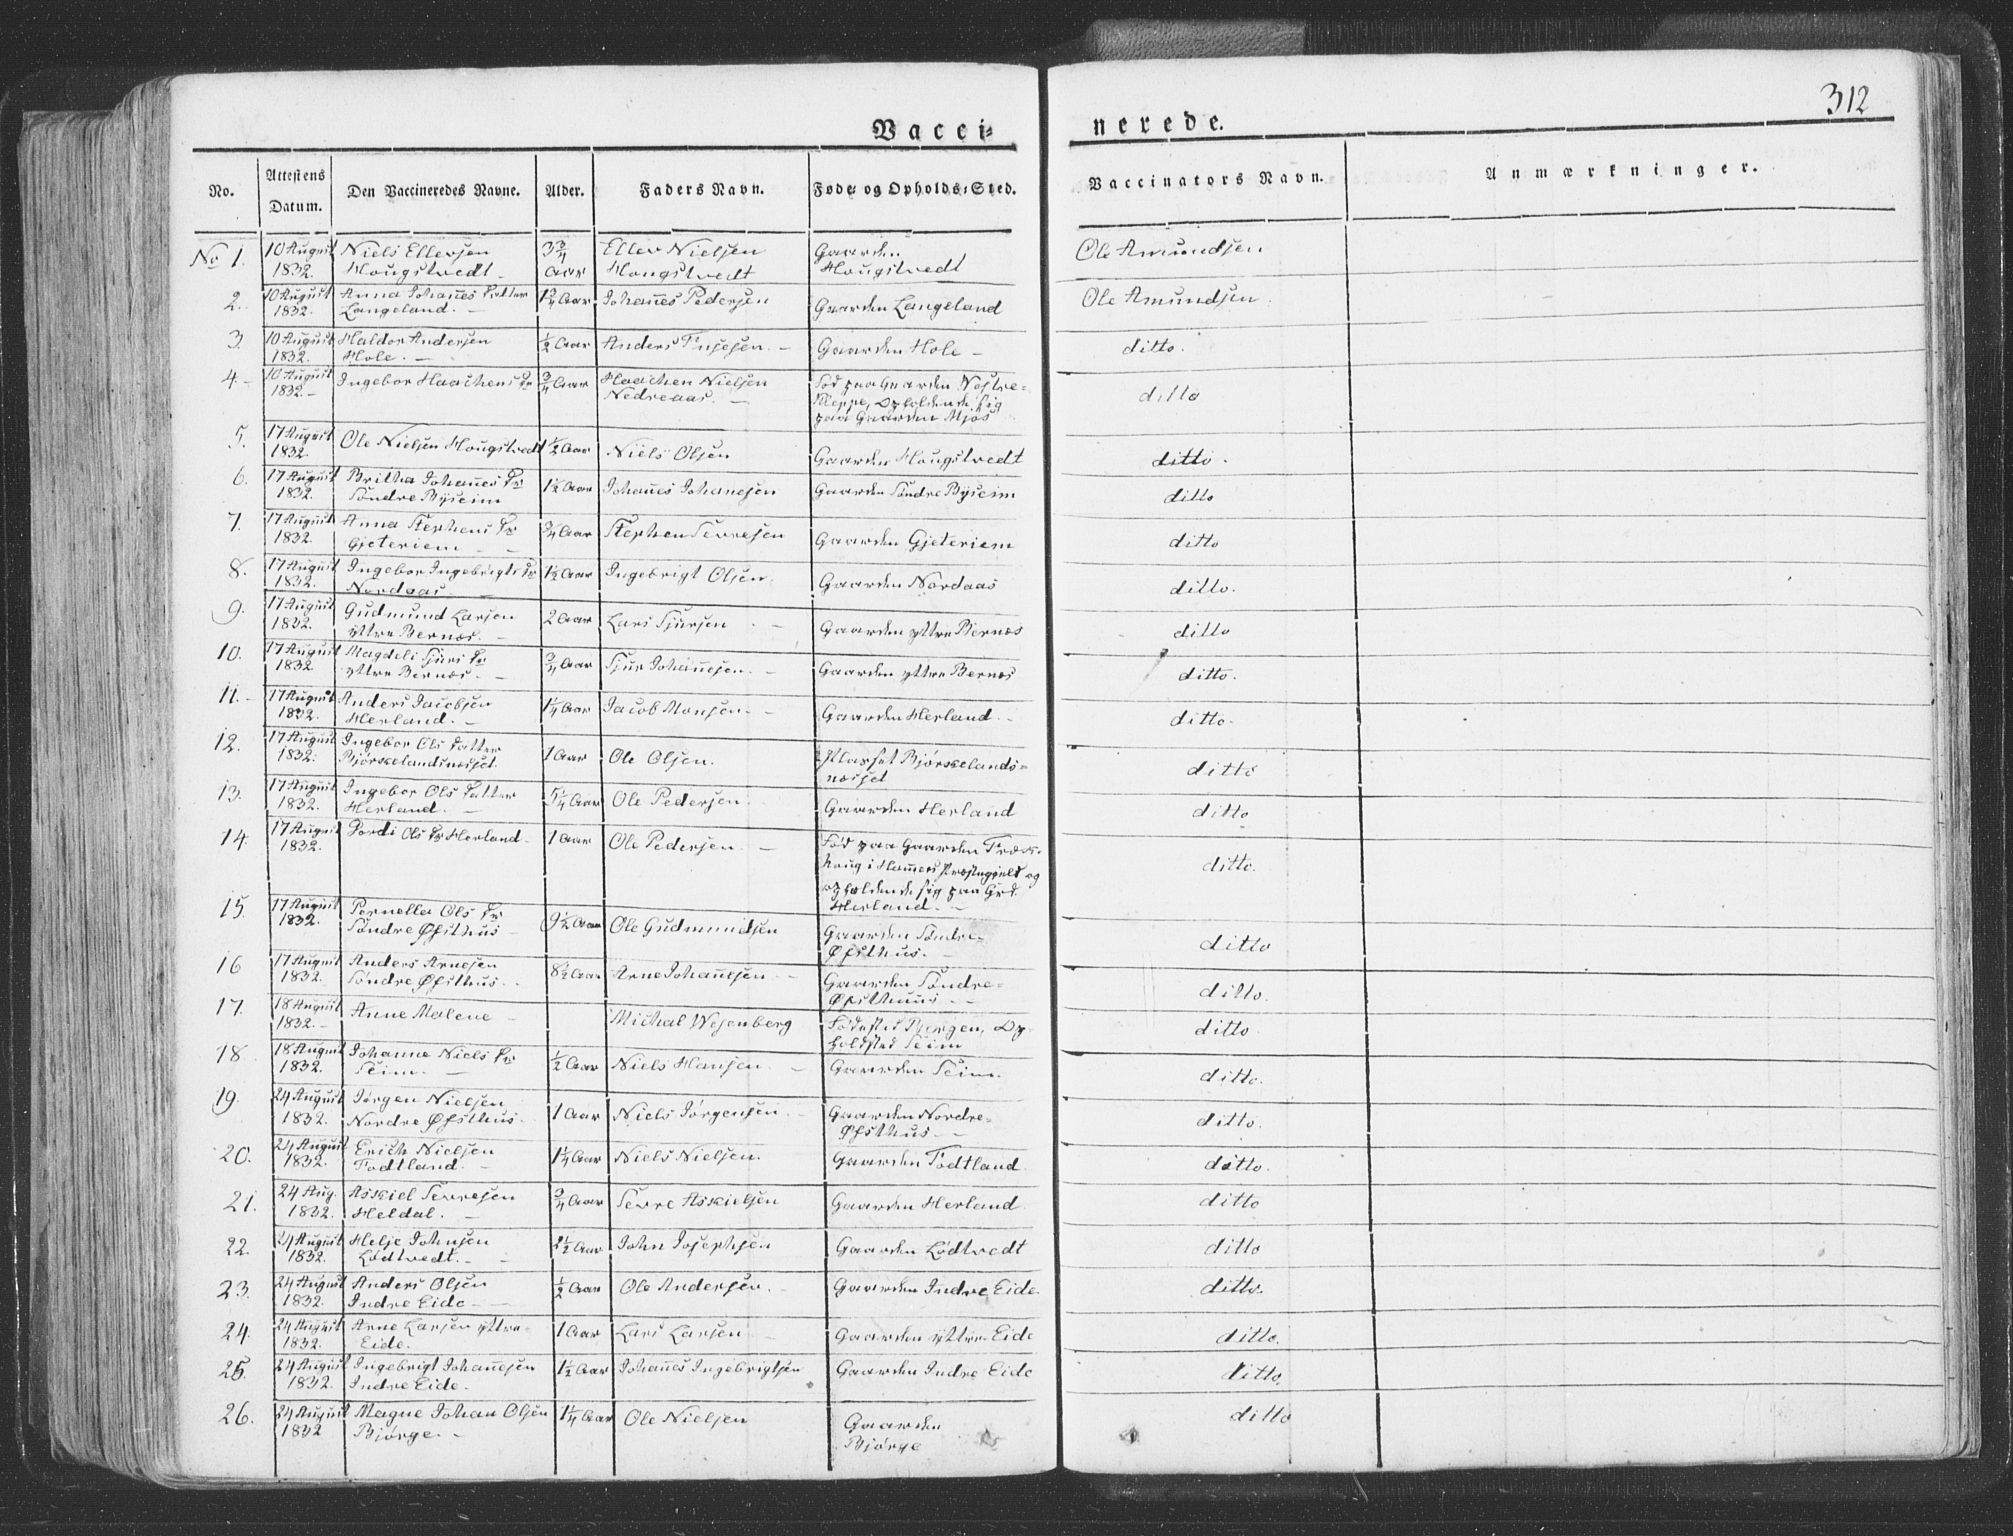 312
Vacci=
nerede.
No. Attestens Datum. Den Vaccineredes Navne. Alder. Faders Navn. Føde- og Opholds-Sted. Vaccinators Navn. Anmærkninger.
No 1. 10 August 1832. Niels Ellersen Hougstvedt 3 3/4 Aar Eller Nielsen Hougstvedt Gaarden Hougstvedt Ole Amundsen
2. 10 August 1832. Anna Johanes Datter Langeland. Aar Johanes Pedersen Gaarden Langeland Ole Amundsen
3. 10 August 1832. Haldor Andersen Hole. 1/2 Aar Anders Gaarden Hole ditto.
4. 10 August 1832. Ingebor Haachens Dr 3/4 Aar Haachen Nielsen Nedreaas. Fød paa Gaarden Nestre= Kleppe, Opholdende sig paa Gaarden Mjøs ditto
5. 17 August 1832. Ole Nielsen Hougstvedt 1/2 Aar Niels Olsen Gaarden Hougstvedt ditto.
6. 17 August 1832. Britha Johanes Dr Søndre Byseim 1 1/2 Aar Johanes Johanesen Gaarden Søndre Byseim ditto
7. 17 August 1832. Anna Stephens Dr Gjeteriem 3/4 Aar Stephen Sevresen Gaarden Gjeteriem ditto
8. 17 August 1832. Ingebor Ingebrigts Dr Nordaas 1 1/2 Aar Ingebrigt Olsen. Gaarden Nordaas ditto.
9. 17 August 1832. Gudmund Larsen yttre Bernæs. 2 Aar Lars Sjursen Gaarden yttre Bernæs ditto
10. 17 August 1832 Magdeli Sjurs Dr yttre Bernæs. 3/4 Aar Sjur Johanesen Gaarden yttre Bernæs ditto.
11. 17 August 1832. Anders Jacobsen Herland. 1 1/4 Aar Jacob Monsen. Gaarden Herland. ditto.
12. 17 August 1832. Ingebor Ols Datter Bjørskelandsnæsset. 1 Aar Ole Olsen. Plasset Bjørskelands= næsset ditto
13. 17 August 1832. Ingebor Ols Datter Herland. 5 1/4 Aar Ole Pedersen. Gaarden Herland ditto
14. 17 August 1832. Gordi Ols Dr Herland. 1 Aar Ole Pedersen. Fød paa Gaarden houg i Hamers Præstegjeld og opholdende sig paa Grd. Herland. ditto.
15. 17 August 1832. Pernella Ols Dr Søndre Øfsthus 9 1/2 Aar Ole Gudmundsen Gaarden Søndre= Øfsthus. ditto
16 17 August 1832. Anders Arnesen Søndre Øfsthus. 8 1/2 Aar Arne Johanesen Gaarden Søndre= Øfsthuus ditto.
17. 18 August 1832. Anne Malene Michal Wesenberg Fødested Bergen, Op= holdsted Seim ditto.
18 18 August 1832. Johanne Niels Dr Seim. 1/2 Aar Niels Hansen. Gaarden Seim. ditto.
19. 24 August 1832. Jørgen Nielsen Nordre Øfsthus. 1 Aar Niels Jørgensen. Gaarden Nordre= Øfsthus. ditto.
20. 24 August 1832. Erich Nielsen Fodtland. 1 1/4 Aar Niels Nielsen. Gaarden Fodtland. ditto.
21. 24 Aug. 1832. Askiel Sevresen Heldal. 3/4 Aar Sevre Askielsen Gaarden Herland. ditto
22. 24 August 1832. Helje Johnsen Lødtvedt. 1/2 Aar John Josephsen Gaarden Lødtvedt ditto
23. 24 August 1832. Anders Olsen Indre Eide 1/2 Aar Ole Andersen. Gaarden Indre Eide. ditto.
24. 24 August 1832. Arne Larsen yttre= Eide. 1 Aar Lars Larsen Gaarden yttre Eide ditto.
25. 24 August 1832. Ingebrigt Johanesen Indre Eide. 1 1/2 Aar Johanes Ingebrigtsen Gaarden Indre Eide ditto.
26. 24 August 1832 Magne Johan Olsen Bjørge. 1 1/4 Aar Ole Nielsen Gaarden Bjørge ditto